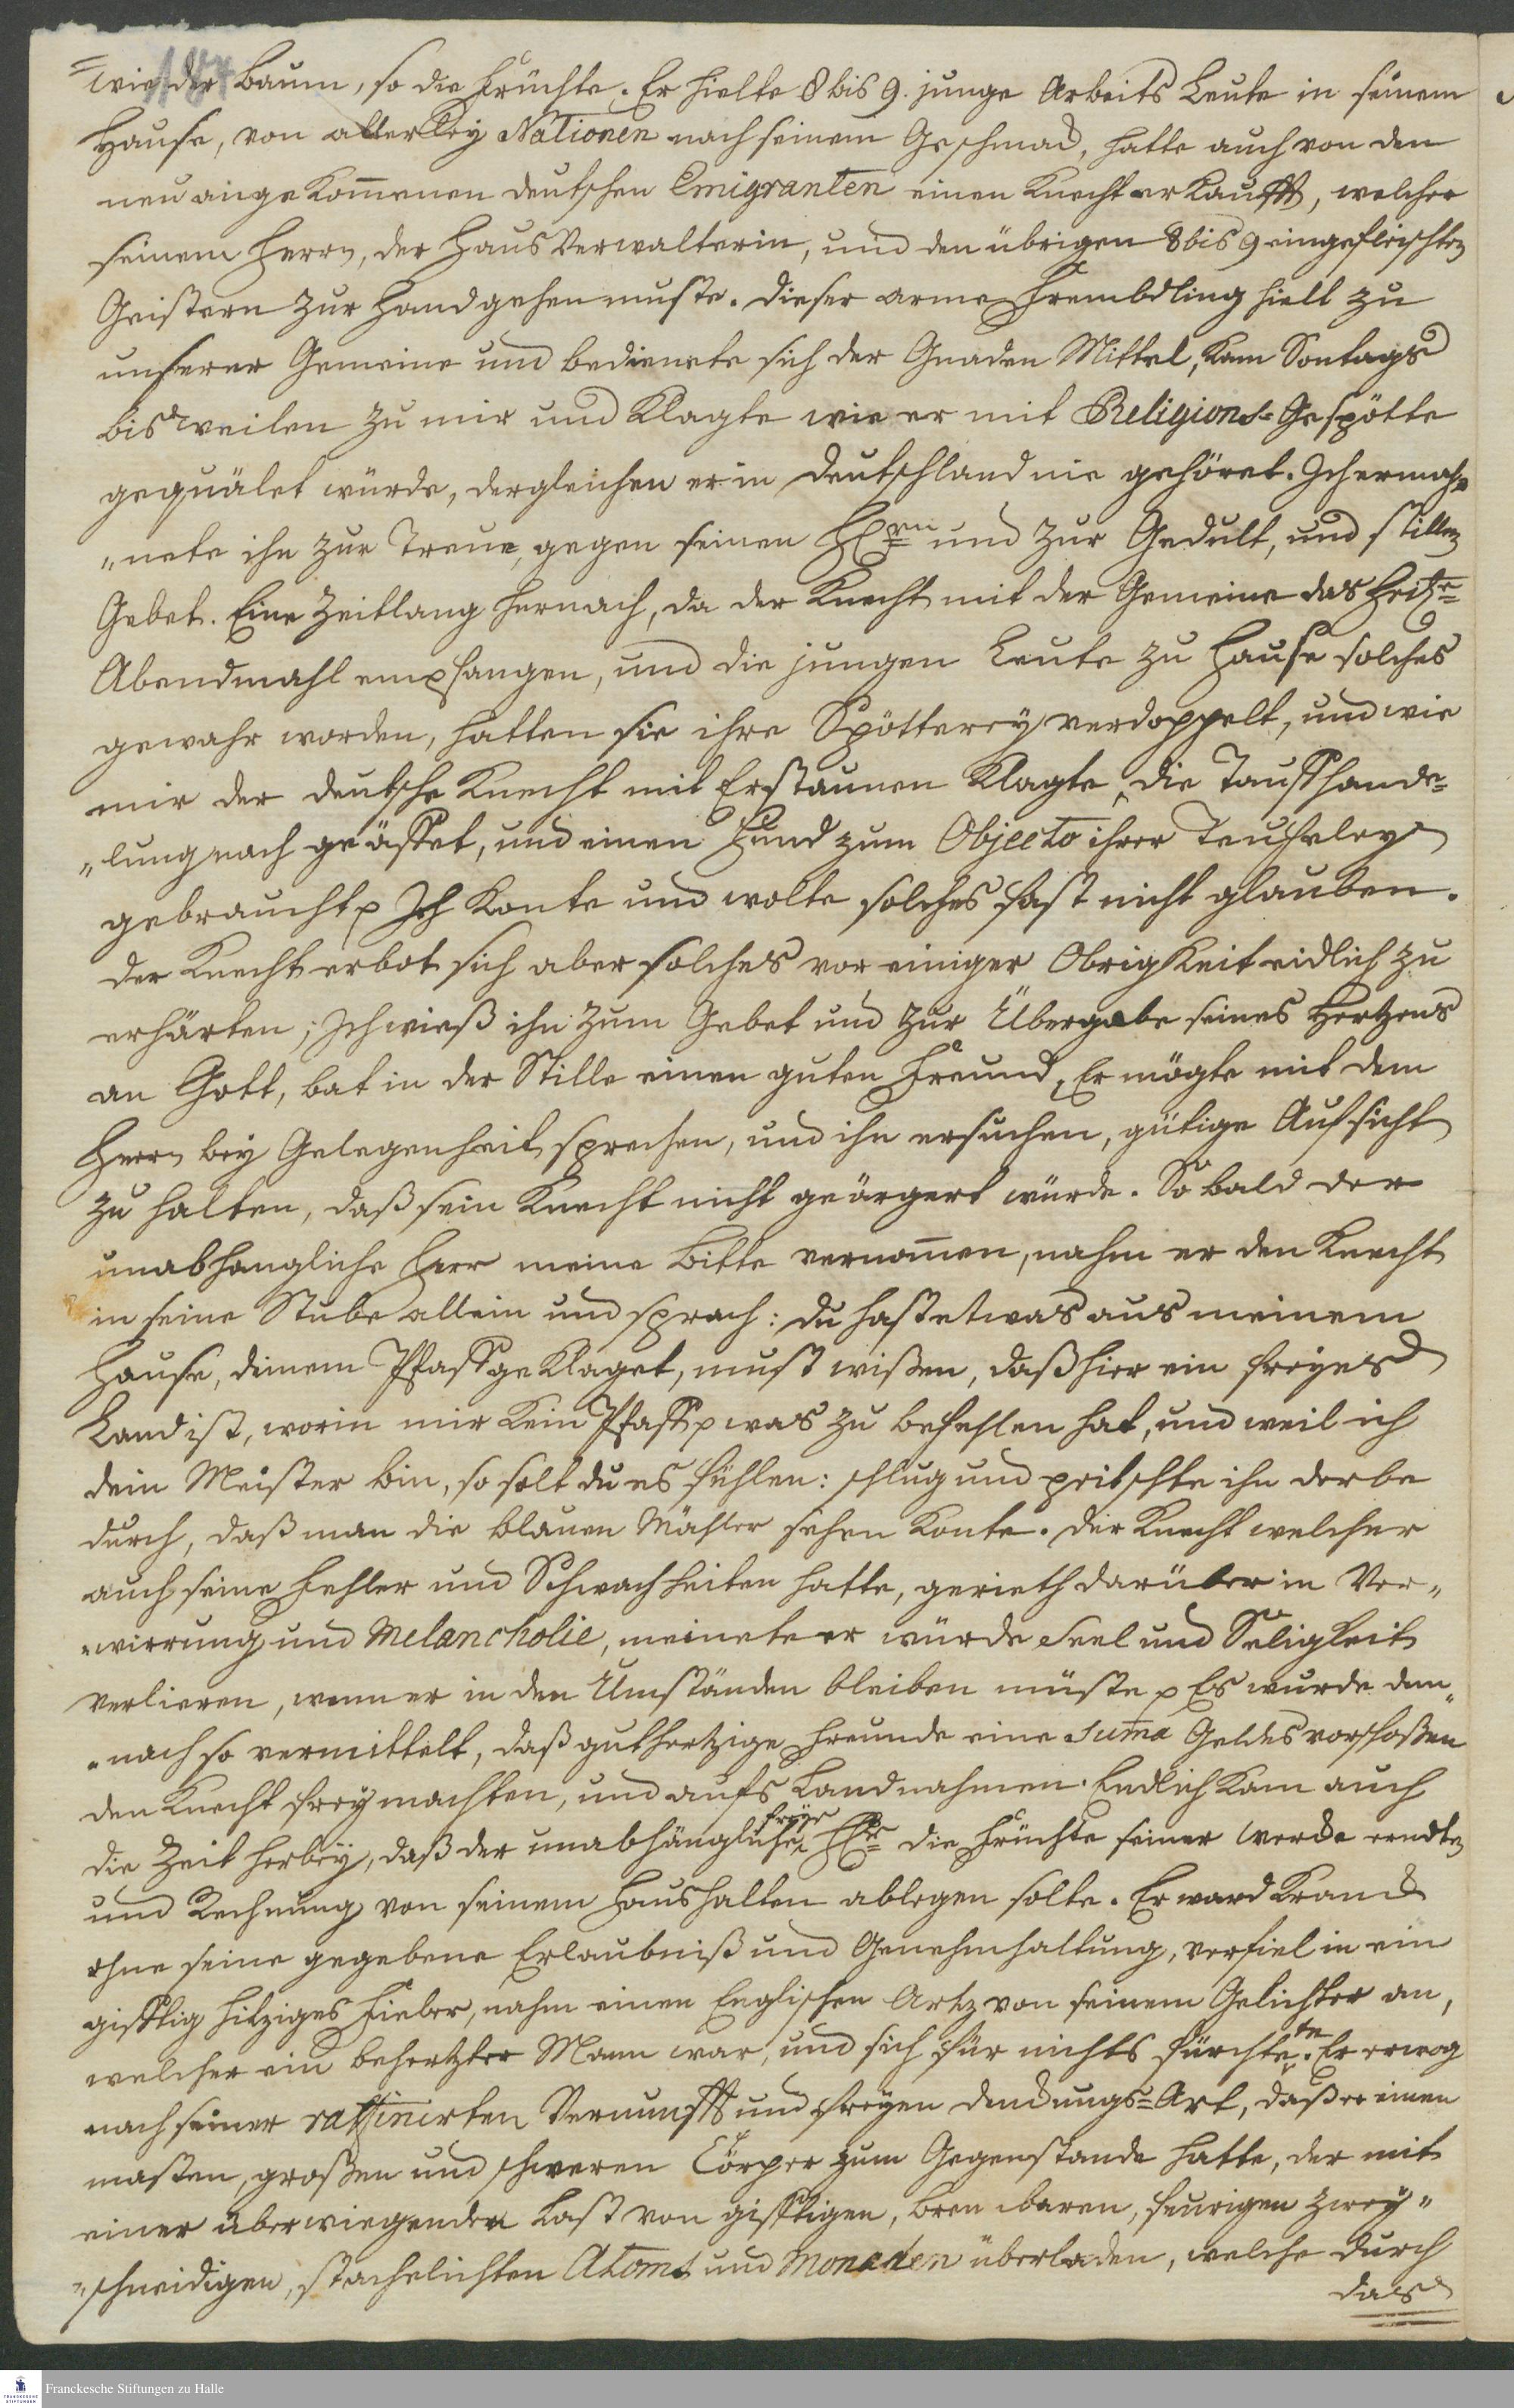 =wie der Baum, so die Früchte. Er hielte 8 bis 9. junge Arbeits Leute in seinem
Hause, von allerley Nationen nach seinem Geschmack, hatte auch von den
neu angekom̄enen deutschen Emigranten einen Knecht erkaufft, welcher
seinem Herrn, der Haus Verwalterin, und den übrigen 8 bis 9 eingefleischten
Geistern zur Hand gehen muste. Dieser arme Frembdling hielt zu
unserer Gemeine und bedienete sich der Gnaden Mittel, kam Sontags
bisweilen zu mir und klagte wie er mit Religions-Gespötte
gequälet würde, dergleichen er in Deutschland nie gehöret. Ich ermah=
„nete ihn zur Treue, gegen seinen HErrn und zur Gedult, und stillen
Gebet. Eine Zeitlang hernach, da der Knecht mit der Gemeine das heil.
Abendmahl empfangen, und die jungen Leute zu Hause solches
gewahr worden, hatten sie ihre Spötterey verdoppelt, und wie
mir der deutsche Knecht mit Erstaunen klagte, die Tauffhande=
„lung nach geäffet, und einen Hund zum Objecto ihrer Teufeley
gebraucht p Ich konte und wolte solches fast nicht glauben.
Der Knecht erbot sich aber solches vor einiger Obrigkeit eidlich zu
erhärten; Ich wieß ihn zum Gebet und zur Übergabe seines Hertzens
an Gott, bat in der Stille einen guten Freund, Er mögte mit dem
Herrn bey Gelegenheit sprechen, und ihn ersuchen, gütige Aufsicht
zu halten, daß sein Knecht nicht geärgert würde. So bald der
unabhangliche Herr meine Bitte vernom̄en, nahm er den Knecht
in seine Stube allein und sprach: du hast etwas aus meinem
Hause, deinem Pfaff geklaget, must wißen, daß hier ein freyes
Land ist, worin mir kein Pfaff p was zu befehlen hat, und weil ich
dein Meister bin, so solt du es fühlen: schlug und peitschte ihn derbe
durch, daß man die blauen Mähler sehen konte. Der Knecht welcher
auch seine Fehler und Schwachheiten hatte, gerieth darüber in Ver„
„wirrung und Melancholie, meinete er würde Seel und Seligkeit
verlieren, wenn er in den Umständen bleiben müste p Es wurde dem„
„nach so vermittelt, daß guthertzige Freunde eine Sum̄a Geldes vorschoßen
den Knecht frey machten, und aufs Land nahmen. Endlich kam auch
die Zeit herbey, daß der unabhängliche freye HErr die Früchte seiner Wercke erndten
und Rechnung von seinem Haushalten ablegen solte. Er ward kranck
ohne seine gegebene Erlaubniß und Genehmhaltung, verfiel in ein
gifftig hitziges Fieber, nahm einen Englischen Artz von seinem Gelichter an,
welcher ein behertzter Mann war, und sich für nichts fürchtete. Er erwog
nach seiner raffinirten Vernunfft und freyen Denckungs=Art, daß er einen
masten, großen und schweren Cörper zum Gegenstande hatte, der mit
einer überwiegenden Last von gifftigen, brenbaren, feurigen zwey„
„schneidigen, stachelichten Atoms und Monaden überladen, welche durch
das